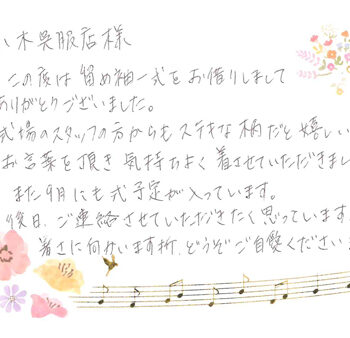 木呉服店様
この度は留め袖一式をお借りしまして
ありがとうございました。
式場のスタッフの方からもステキな柄だと嬉しい
お言葉を頂き気持ちよく着させていただきまし
また9月にも式予定が入っています。
後日、ご連絡させていただきたく思っています
暑さに向かいます折、どうぞご自愛ください